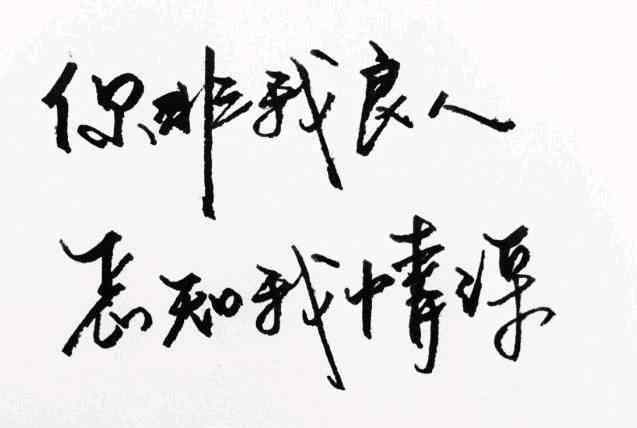 你非我良人
怎知我情深